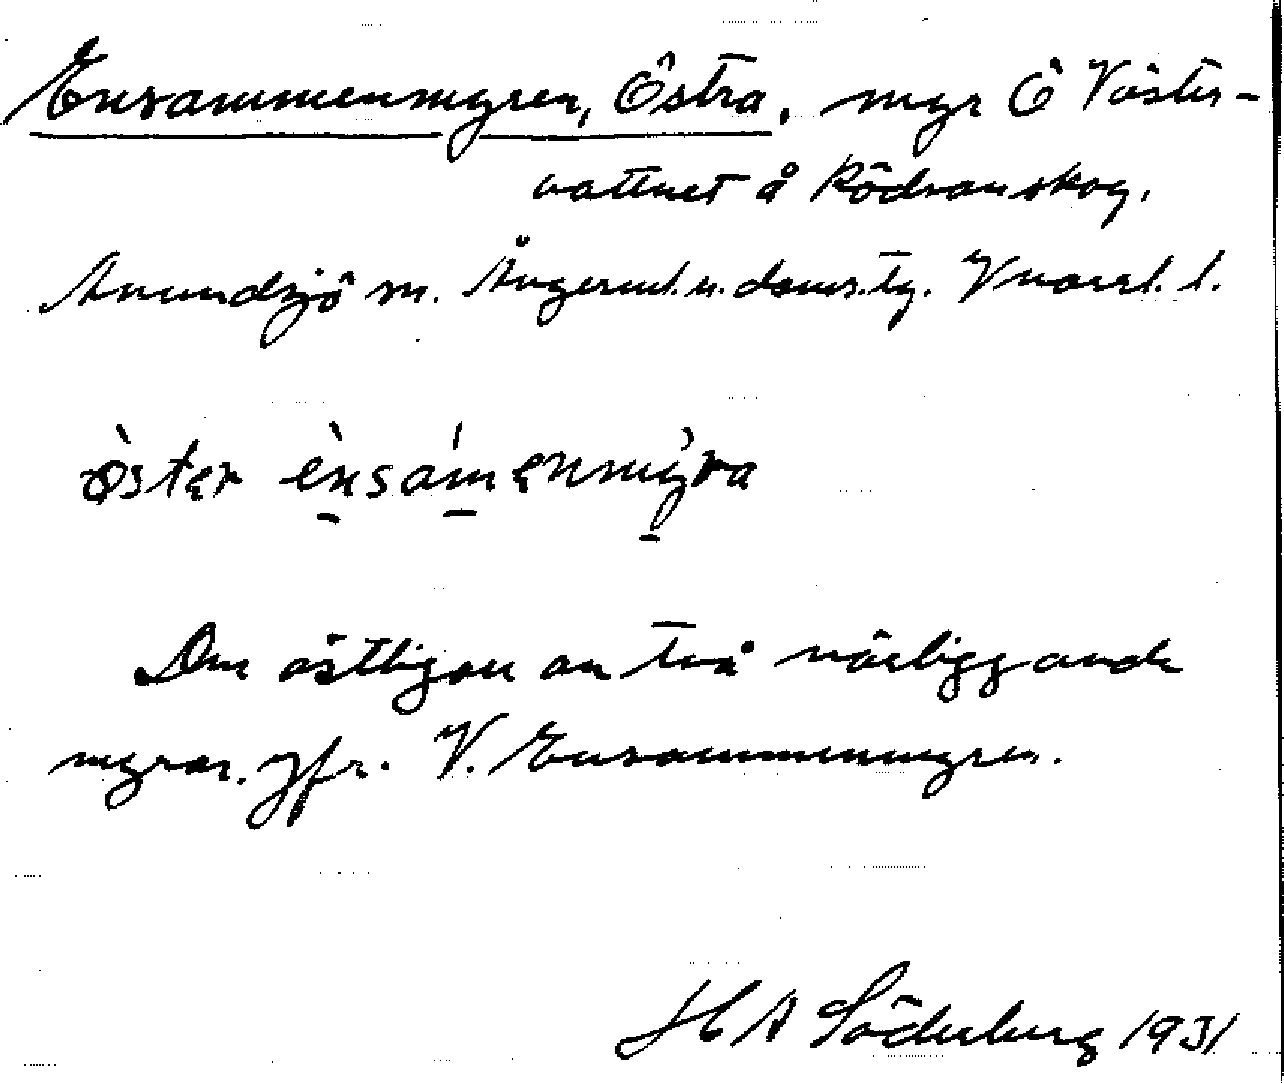 Ensammenmyren, Östra, myr Ö Väster-
vattnet å Rödvanskog,
Anundsjö sn. Ångerml. n. doms.tg. Vnorrl. l.
òster ènsámenmỳra
Den östligare av två närliggande
myrar. Jfr. V. Ensammenmyren.
H A Söderberg 1931